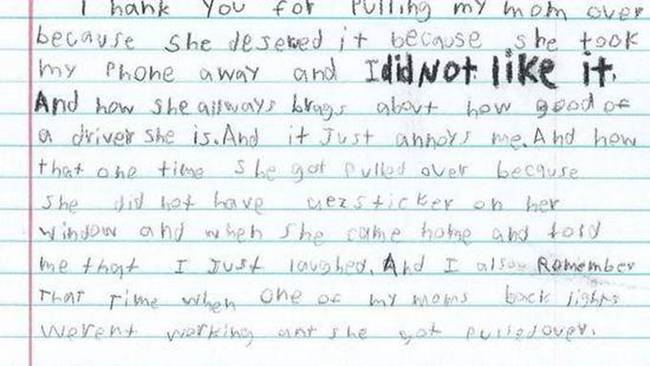 I hank you for pulling my mom over
because she deserved it because she took
my phone away and I did Not like it.
And how she allways brags about how good of
a driver she is. And it Just annoys me. And how
that one time she got pulled over because
she did not have sticker on her
window and when she came home and told
me that I Just laughed. And I also Remember
That Time when one of my moms back lights
werent working ant she got pulled over.